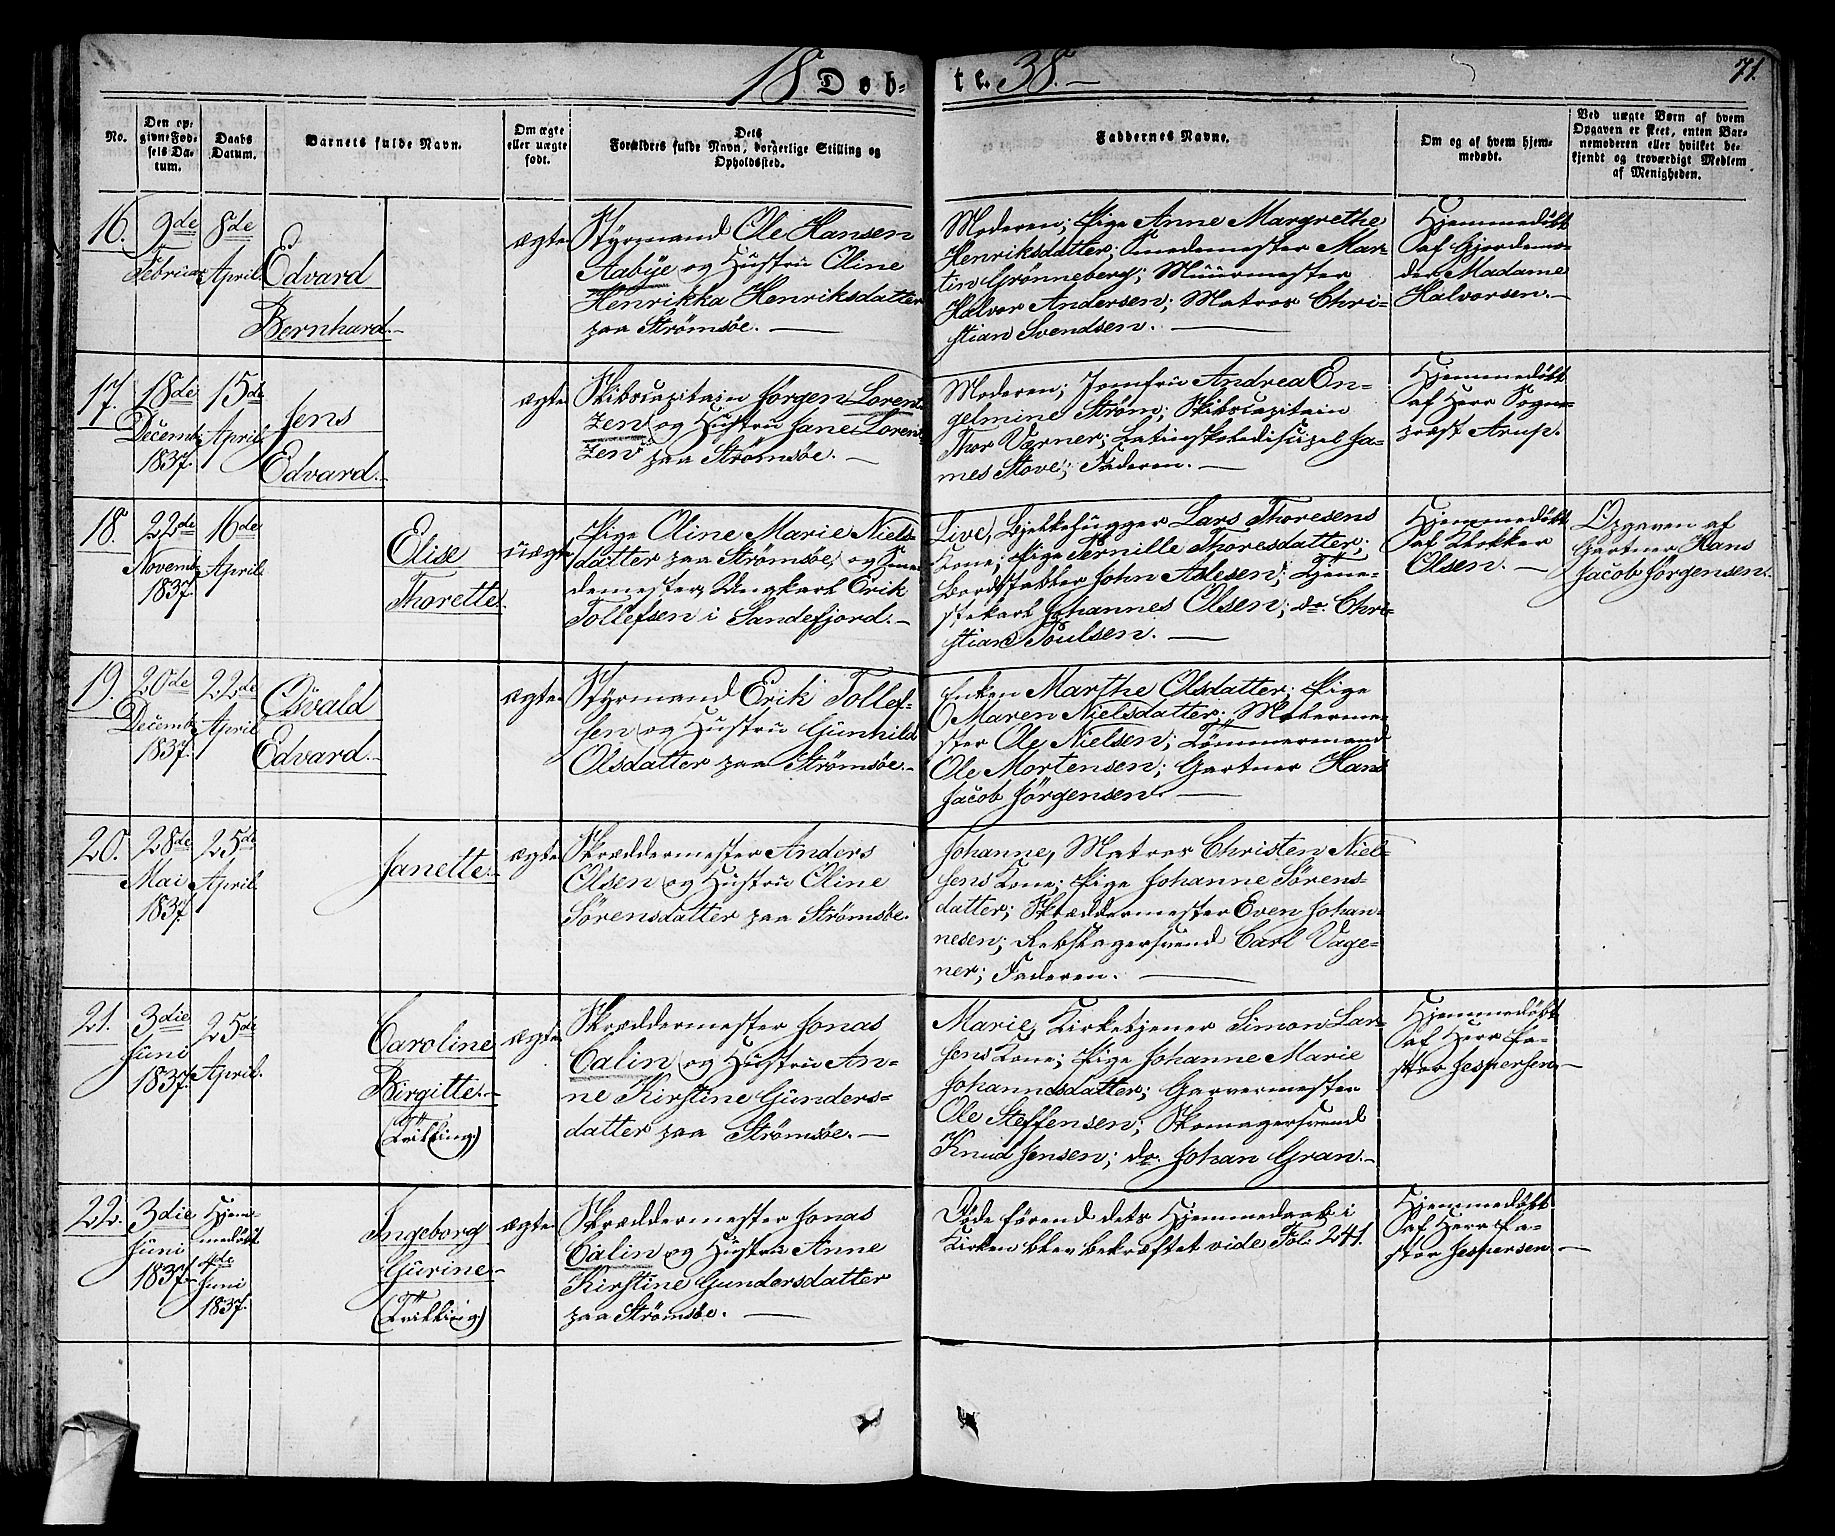 18 Døb-
te. 38.-
71.
No.
Den op-
givne Fød-
sels Da-
tum.
Daabs
Datum.
Barnets fulde Navn.
Om ægte
eller uægte
født.
Dets
Forældres fulde Navn, borgerlige Stilling og
Opholdssted.
Faddernes Navne.
Om og af hvem hjem-
medøbt.
Ved uægte Børn af hvem
Opgaven er skeet, enten Bar-
nemoderen eller hvilket be-
kjendt og troværdigt Medlem
af Menigheden.
16.
9de
Februar
8de
April
Edvard
Bernhard.-
ægte
Styrmand Ole Hansen
Aabye og Hustru Oline
Henrikka Henriksdatter
paa Strømsøe.-
Moderen; Pige Anne Margrethe
Henriksdatter; Smedemester Mar-
tin Grønneberg; Muurmester
Halvor Andersen; Matros Chri-
stian Svendsen.-
Hjemmedøbt
af Gjordemo-
der Madame
Halvorsen.-
17.
18de
Decemb.
1837.
15de
April.
Jens
Edvard.-
ægte
Skibscapitain Jørgen Lorent-
zen og Hustru Jane Lorent-
zen paa Strømsøe.-
Moderen; Jomfru Andrea En-
gelmine Strøm; Skibscapitain
Thor Værner; Latinskoledisipel Ja-
mes Stove; Faderen.-
Hjemmedøbt
af Herr Sogne-
præst Arup.
18.
22de
Novemb.
1837.
16de
April.
Elise
Thorette.
uægte
Pige Oline Marie Niels-
datter paa Strømsøe, og Sme-
demester, Ungkarl Erik
Tollefsen i Sandefjord.-
Live, Bjelkehugger Lars Thoresens
Kone; Pige Pernille Thoresdatter;
Bordstabler John Aslesen; Tjene-
stekarl Johannes Olsen; do. Chri-
stian Poulsen.-
Hjemmedøbt
af Klokker
Olsen.-
Opgaven af
Gartner Hans
Jacob Jørgensen.
19.
20de
Decemb.
1837.
22de
April
Osvald
Edvard.-
ægte
Styrmand Erik Tollef-
sen og Hustru Gunhild
Olsdatter paa Strømsøe.-
Enken Marthe Olsdatter; Pige
Maren Nielsdatter; Malerme-
ster Ole Nielsen; Tømmermand
Ole Mortensen; Gartner Hans
Jacob Jørgensen.-
20.
28de
Mai
1837.
25de
April.
Janette.-
ægte
Skræddermester Anders
Olsen og Hustru Oline
Sørensdatter paa Strømsøe.
Johanne, Matros Christen Niel-
sens Kone; Pige Johanne Sørens-
datter; Skræddermester Even Johan-
nesen; Rebslagersvend Carl Vage-
ner; Faderen.-
21.
3die
Juni
1837.
25de
April.
Caroline
Birgitte.-
(Tvilling.)
ægte
Skræddermester Jonas
Calin og Hustru An-
ne Kirstine Gunders-
datter paa Strømsøe.-
Marie, Kirketjener Simon Lar-
sens Kone; Pige Johanne Marie
Johannesdatter; Garvermester
Ole Steffensen; Skomagersvend
Knud Jensen; do. Johan Gran.-
Hjemmedøbt
af Herr Pa-
stor Jespersen.-
22.
3die
Juni
1837.
Hjem-
medøbt
4de
Juni
1837.
Ingeborg
Gurine.-
(Tvilling)
ægte
Skræddermester Jonas
Calin og Hustru Anne
Kirstine Gundersdatter
paa Strømsøe.-
Døde førend dets Hjemmedaab i
Kirken blev bekræftet vide Fol: 241.
Hjemmedøbt
af Herr Pa-
stor Jespersen.-